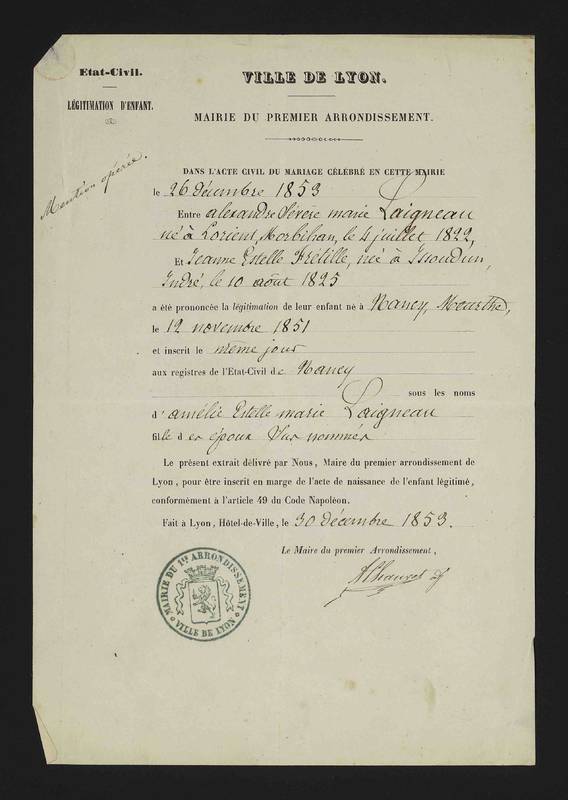 Etat-Civil.
LÉGITIMATION D'ENFANT.
Mention opérée.
VILLE DE LYON.
MAIRIE DU PREMIER ARRONDISSEMENT.
DANS L'ACTE CIVIL DU MARIAGE CÉLÉBRÉ EN CETTE MAIRIE
le 26 décembre 1853
Entre alexandre Sévère marie Laigneau
né à Lorient, Morbihan, le 4 juillet 1822,
Et Jeanne Estelle Frétille, née à Issoudun,
Indre, le 10 août 1825
a été prononcée la légitimation de leur enfant né à Nancy, Meurthe,
le 12 novembre 1851
et inscrit le même jour
aux registres de l'Etat-Civil de Nancy
sous les noms
d'amélie Estelle marie Laigneau
fille des époux Sus nommés
Le présent extrait délivré par Nous, Maire du premier arrondissement de
Lyon, pour être inscrit en marge de l'acte de naissance de l'enfant légitimé,
conformément à l'article 49 du Code Napoléon.
Fait à Lyon, Hôtel-de-Ville, le 30 décembre 1853.
Le Maire du premier Arrondissement,
MAIRIE DU 1er ARRONDISSEMENT
VILLE DE LYON